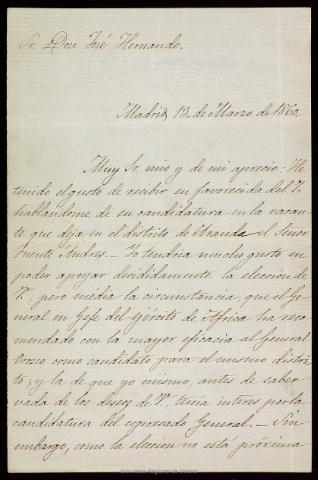 Sr. Don José Hernando.
Madrid, 13. de Marzo de 1860.
Muy Sr. mio y de mi aprecio: He
tenido el gusto de recibir su favorecida del 7.
hablandome de su candidatura en la vacan-
te que deja en el distrito de Aranda el Señor
Fuente Andres. - Yo tendria mucho gusto en
poder apoyar decididamente la eleccion de
V. pero média la circunstancia, que el Ge-
neral en Gefe del ejército de Africa ha reco-
mendado con la mayor eficacia al General
Orozco como candidato para el mismo distri-
to, y la de que yo mismo, antes de saber
nada de los deseos de V. tenia interes por la
candidatura del espresado General. - Sin
embargo, como la eleccion no está próxima